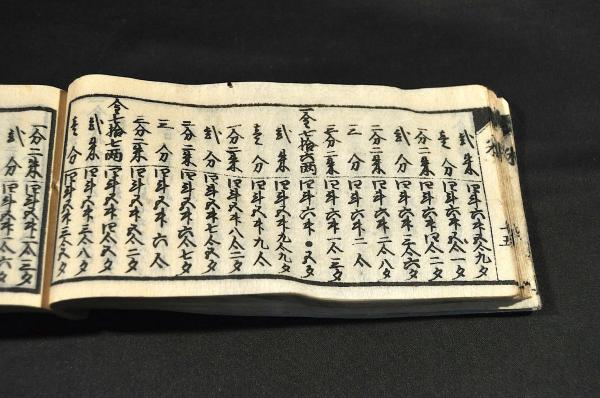 弐朱 四斗六升五合九夕
壱分 四斗六升五合一夕
一分二朱 四斗六升四合三夕
弐分 四斗六升三合六夕
二分二朱 四斗六升二合八夕
三分 四斗六升二合
三分二朱 四斗六升一合三夕
一金七拾六両 四斗六升・五夕
弐朱 四斗五升九合九夕
壱分 四斗五升九合
一分二朱 四斗五升八合二夕
弐分 四斗五升七合五夕
二分二朱 四斗五升六合七夕
三分 四斗五升六合
三分二朱 四斗五升五合二夕
金七拾七両 四斗五升四合五夕
弐朱 四斗五升三合八夕
壱分 四斗五升三合
一分二朱 四斗五升二合三夕
弐分 四斗五升一合六夕